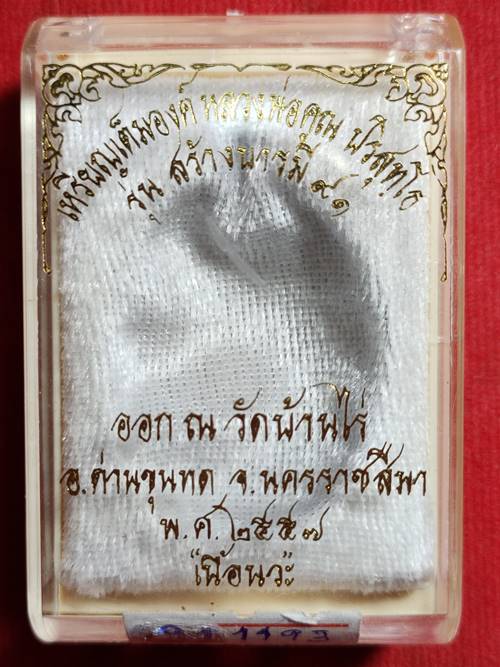 เหรียญเต็มองค์ หลวงพ่อคูณ ปริสุทฺโธ
รุ่น สร้างบารมี ๙๑
ออก ณ วัดบ้านไร่
อ.ด่านขุนทด จ.นครราชสีมา
พ.ศ.๒๕๕๗
"เนื้อนวะ"